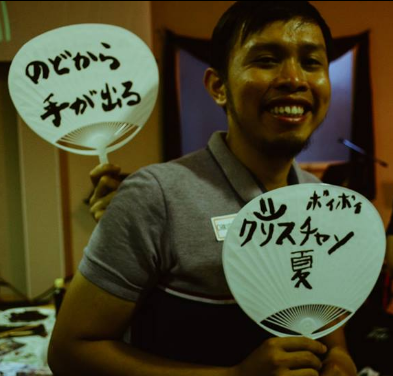 のどから
手が出る
ボイボイ
クリスチャン
夏